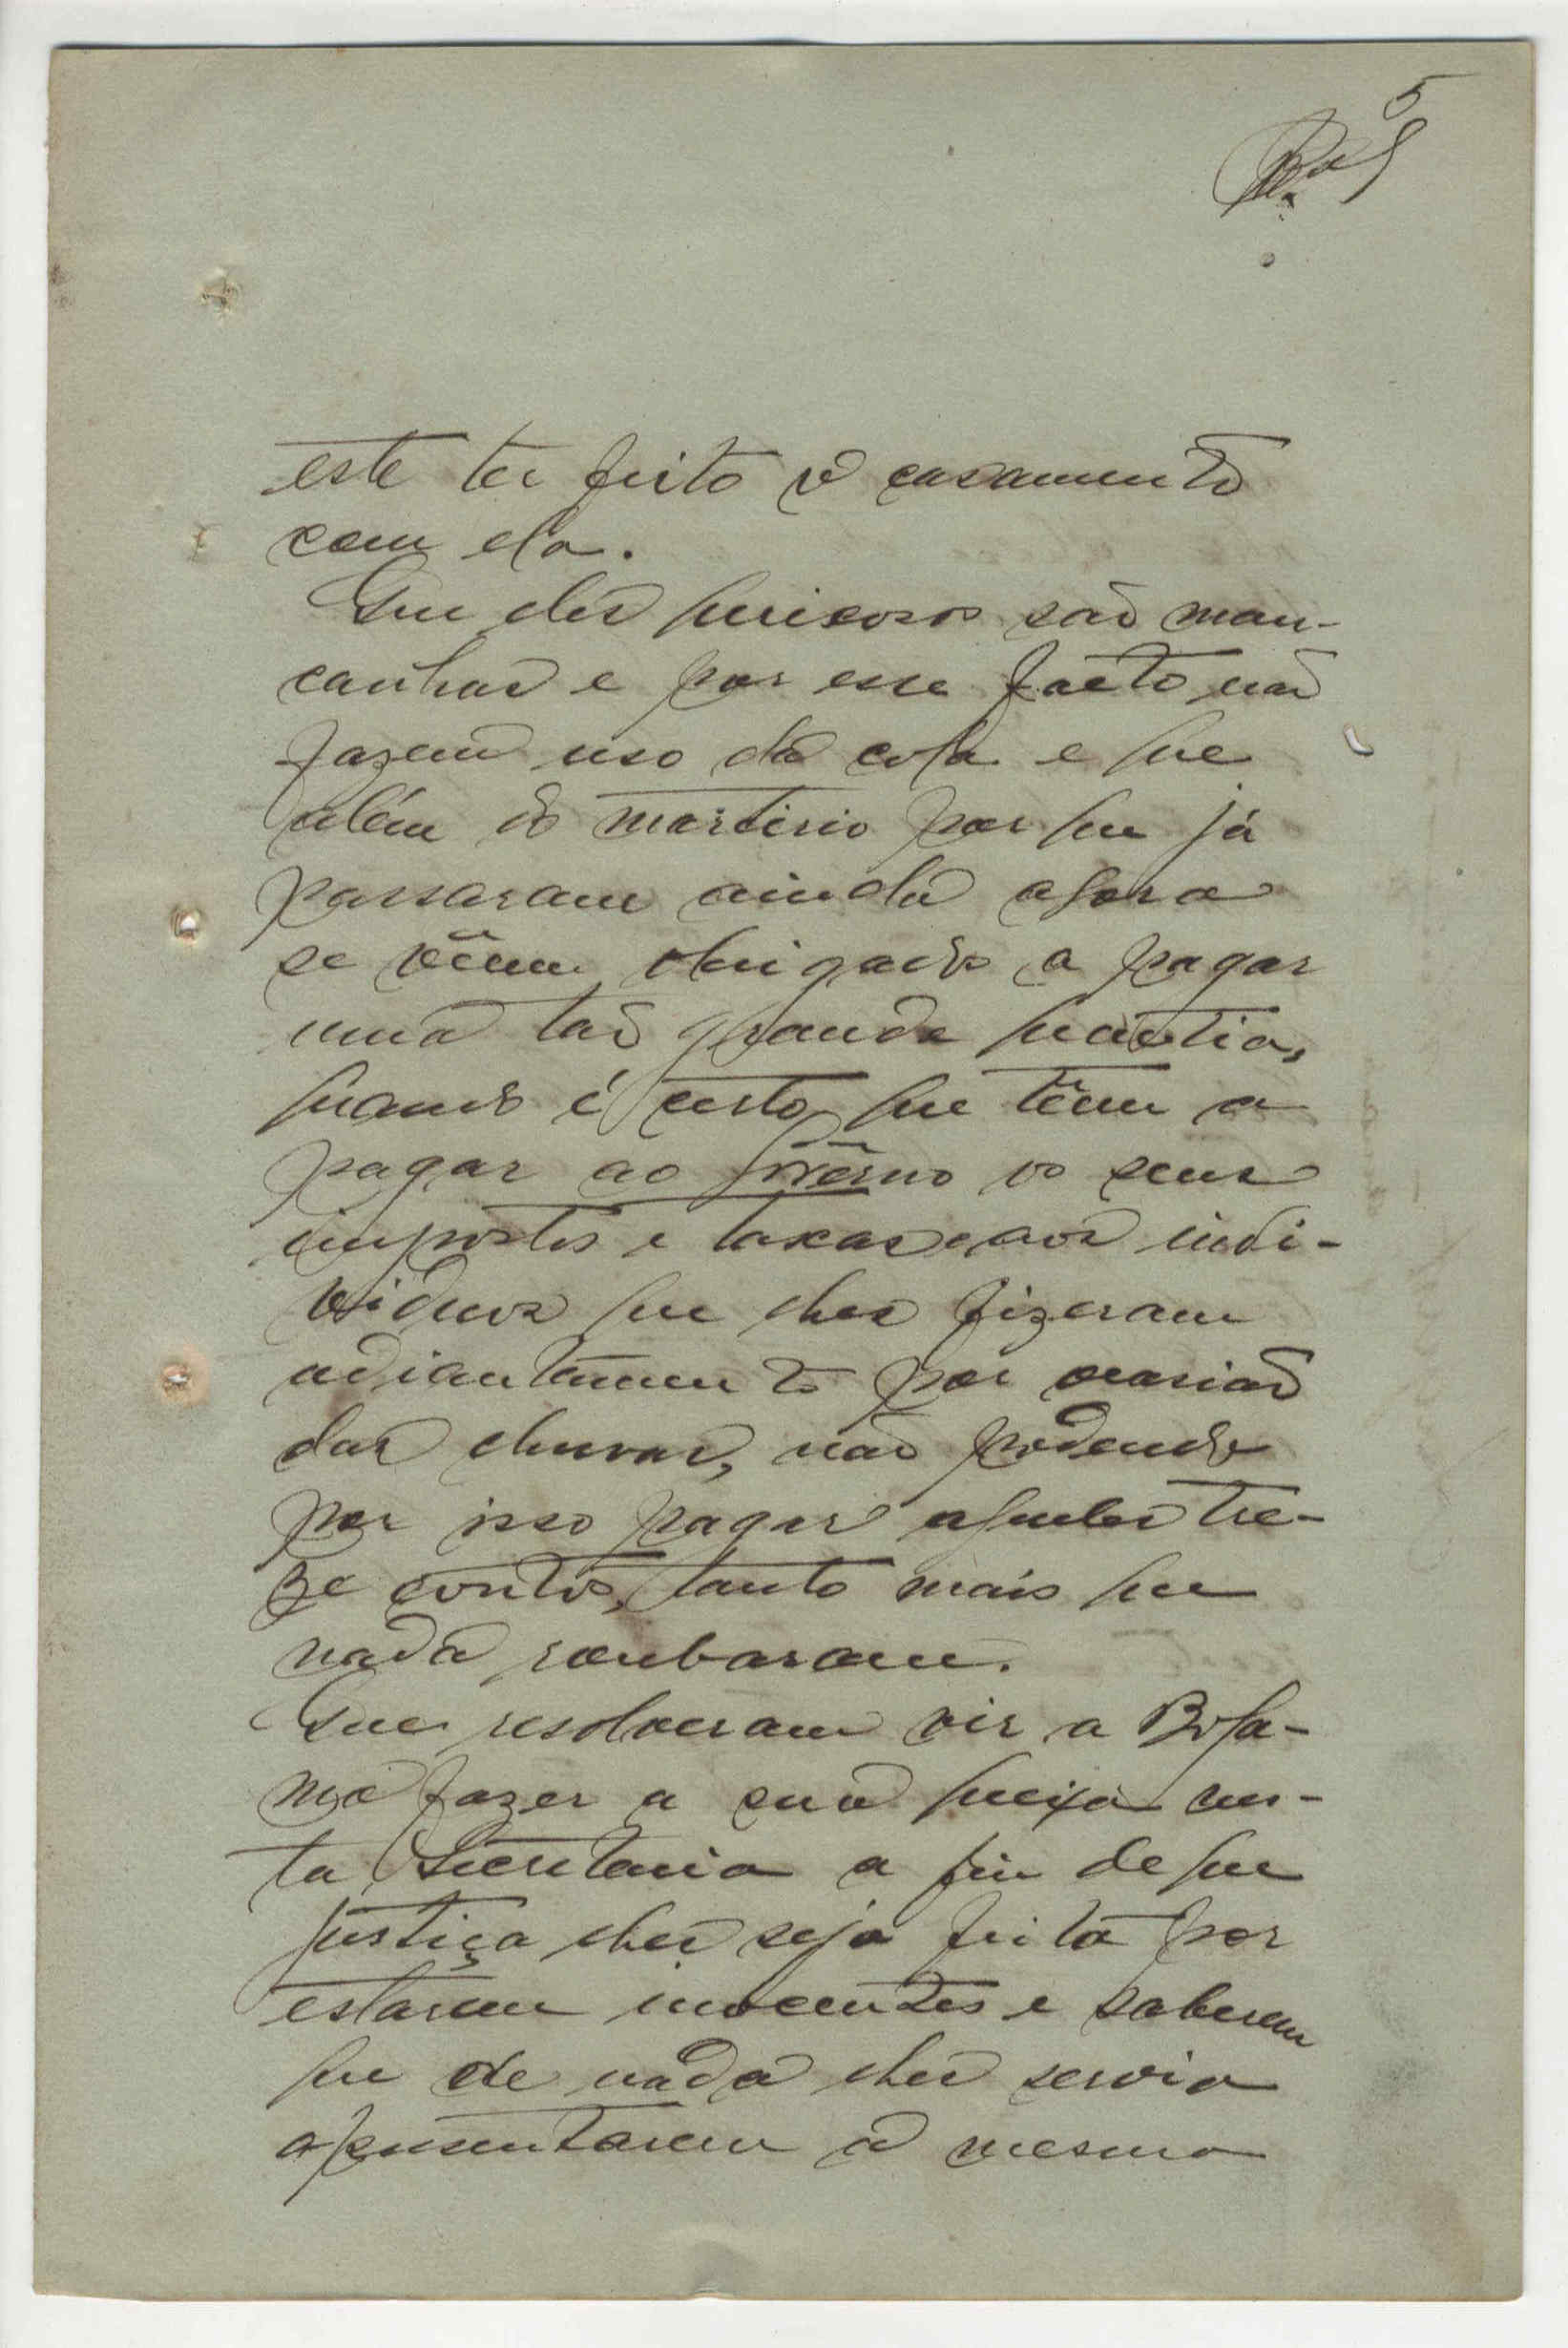 5
este ter feito o casamento
com ela.
Que eles queixosos são man-
canhas e por esse facto não
fazem uso da cola e que
além do martirio por que já
passaram ainda agora
se vêem obrigados a pagar
uma tão grande quantia,
quando é certo que têem a
pagar ao Govêrno os seus
impostos e taxas e aos indi-
viduos que lhes fizeram
adiantamento por ocasião
das chuvas, não podendo
por isso pagar aqueles tre-
ze contos, tanto mais que
nada roubaram.
Que resolveram vir a Bola-
ma fazer a sua queixa nes-
ta Secretaria a fim de que
justiça lhes seja feita por
estarem inocentes e saberem
que de nada lhes servia
apresentarem a mesma